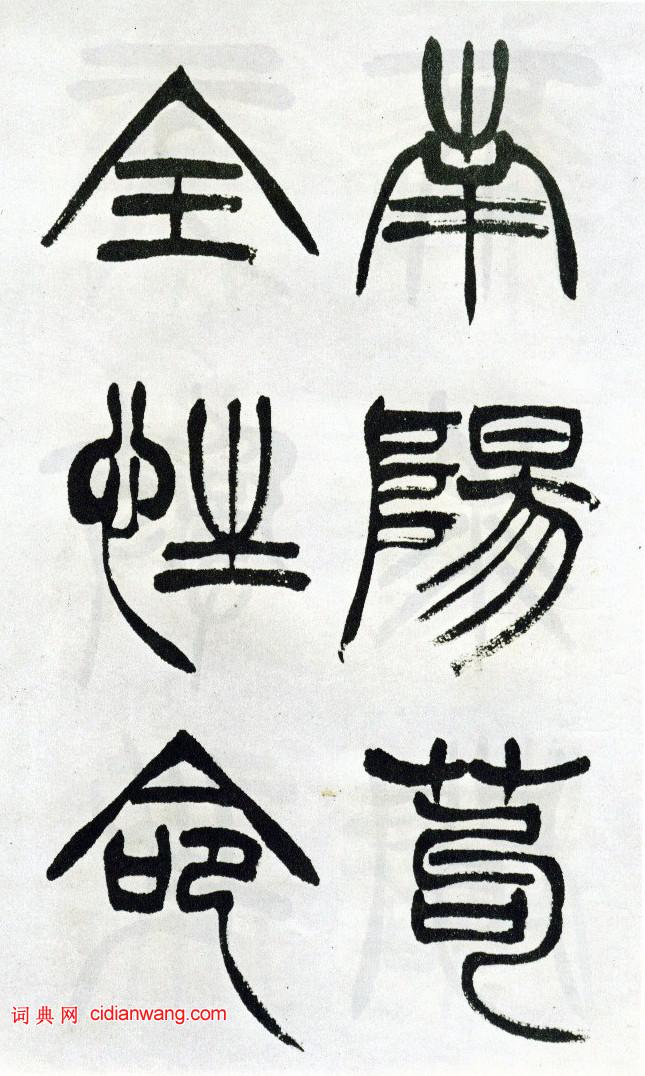 南陽苟
全性命
词典网 cidianwang.com